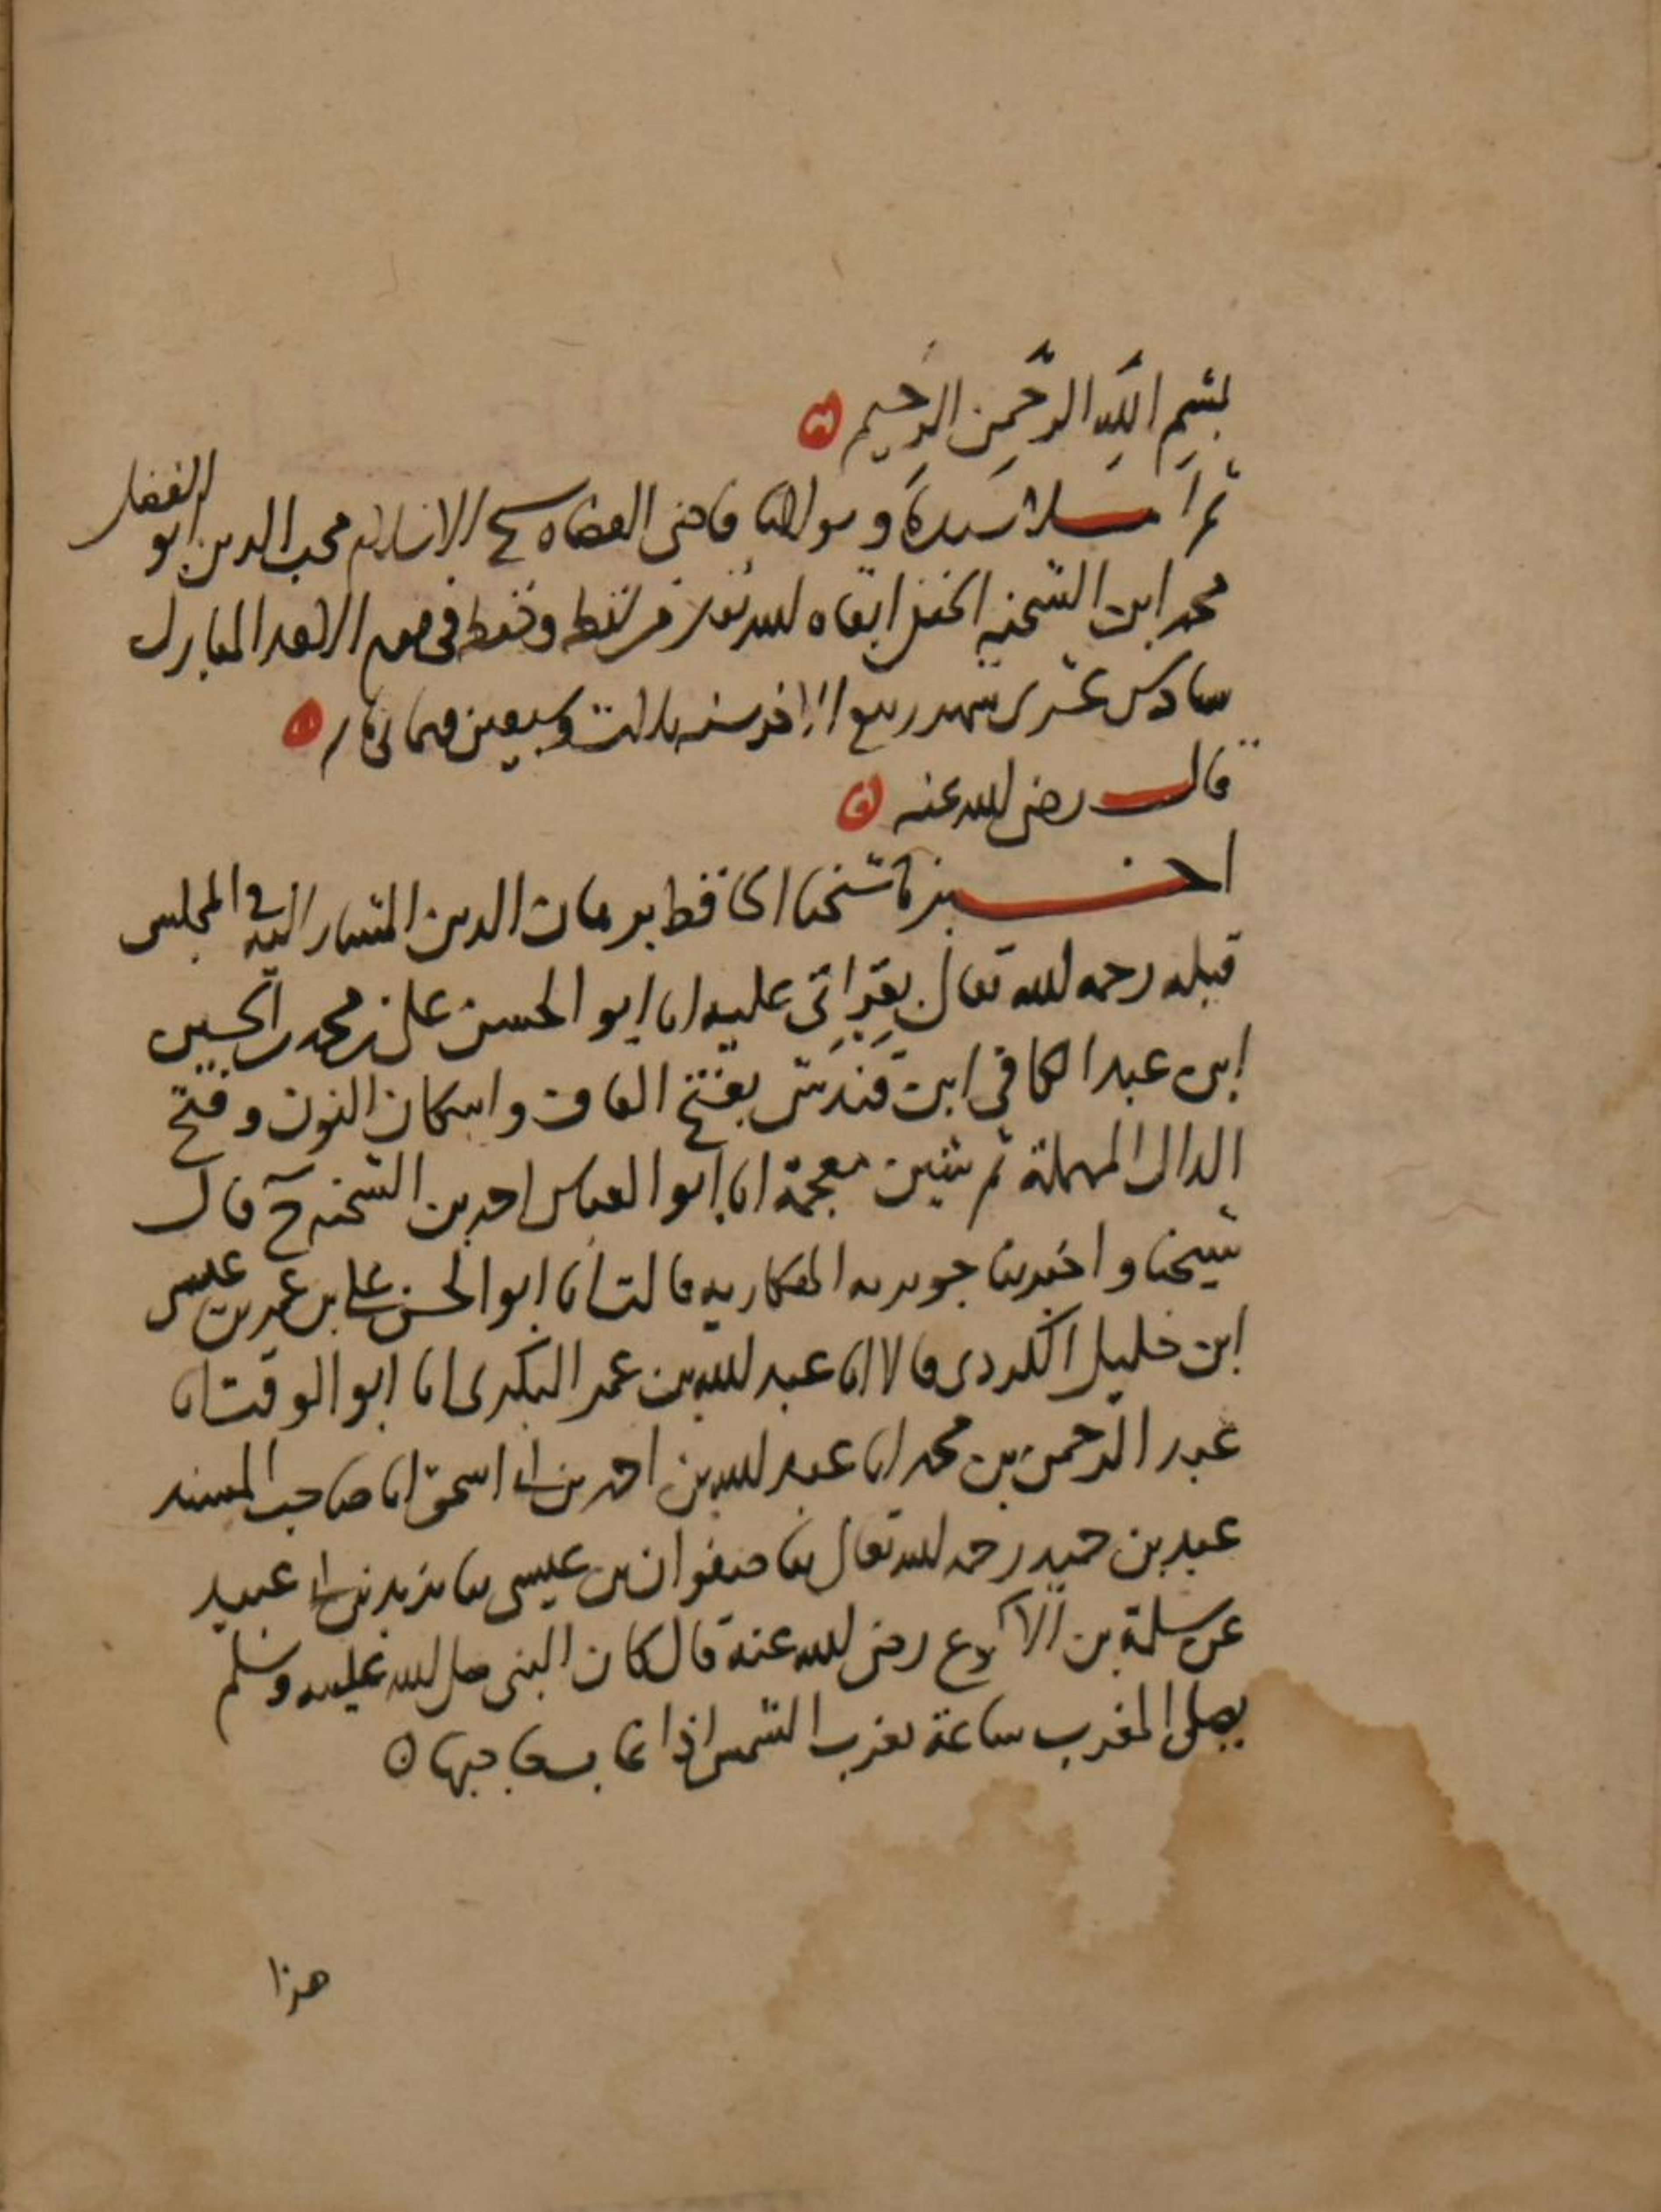 بسم الله الرحمن الرحيم
ثم املا سيدنا ومولانا قاضي القضاه شيخ الاسلام محب الدين ابو الفضل
محمد ابن الشحنه الحنفي ابقاه الله تعالى من لفظه وحفظه في يوم الاحد المبارك
سادس عشرى شهر ربيع الاخر سنه ثلاث وسبعين وثمانمائه
قال رضي الله عنه
اخبرنا شيخنا الحافظ برهان الدين المشار اليه في المجلس
قبله رحمه الله تعالى بقراتي عليه انا ابو الحسن علي بن محمد بن الحسين
ابن عبد الكافي ابن قندش بفتح القاف واسكان النون وفتح
الدال المهملة ثم شين معجمة انا ابو العباس احمد بن الشحنه ح قال
شيخنا واخبرتنا جويريه الهكاريه قالت انا ابو الحسن علي بن عمر بن عيسى
ابن خليل الكردي قالا انا عبد الله بن عمر البكرى انا ابو الوقت انا
عبد الرحمن بن محمد انا عبد الله بن احمد بن اسحق انا صاحب المسند
عبد بن حميد رحمه الله تعالى ثنا صفوان بن عيسى ثنا يزيد بن ابي عبيد
عن سلمة بن الاكوع رضي الله عنه قال كان النبي صلى الله عليه وسلم
يصلى المغرب ساعة تغرب الشمس اذا غاب حاجبها
هذا